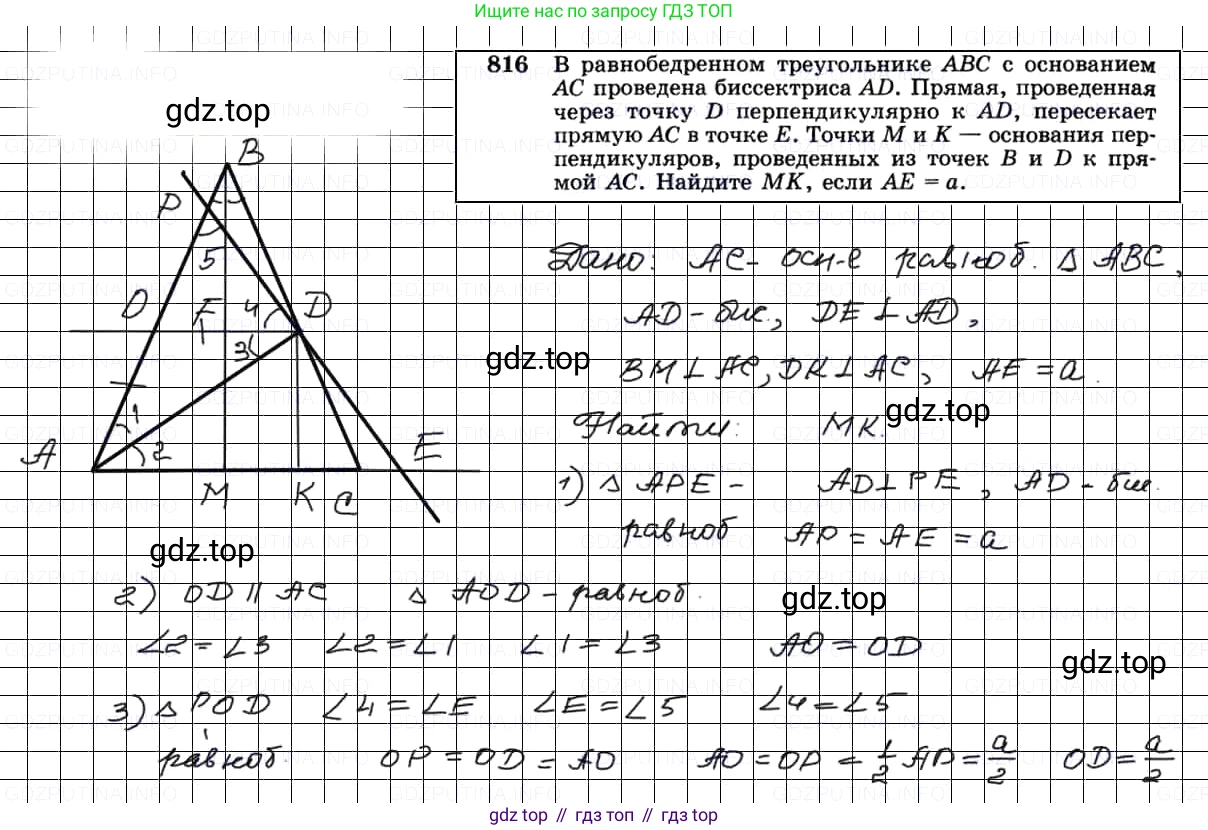 Ищите нас по запросу ГДЗ ТОП
816 В равнобедренном треугольнике ABC с основанием
AC проведена биссектриса AD. Прямая, проведенная
через точку D перпендикулярно к AD, пересекает
прямую AC в точке E. Точки M и K — основания пер-
пендикуляров, проведенных из точек B и D к пря-
мой AC. Найдите MK, если AE = a.
gdz.top
B
P
5
O F 4 D
3
1
2
A E
M K C
Дано: AC - осн-е равноб. Δ ABC,
AD - бис., DE ⊥ AD,
gdz.top
BM ⊥ AC, DK ⊥ AC, AE = a.
gdz.top
Найти: MK.
1) Δ APE - AD ⊥ PE, AD - бис.
равноб AP = AE = a
gdz.top
2) OD || AC Δ AOD - равноб.
gdz.top
∠2 = ∠3 ∠2 = ∠1 ∠1 = ∠3 AO = OD
gdz.top
3) Δ POD ∠4 = ∠E ∠E = ∠5 ∠4 = ∠5
равноб. OP = OD = AO AO = OP = 1/2 AP = a/2 OD = a/2
gdz top // гдз топ // gdz top
GDZPUTINA.INFO